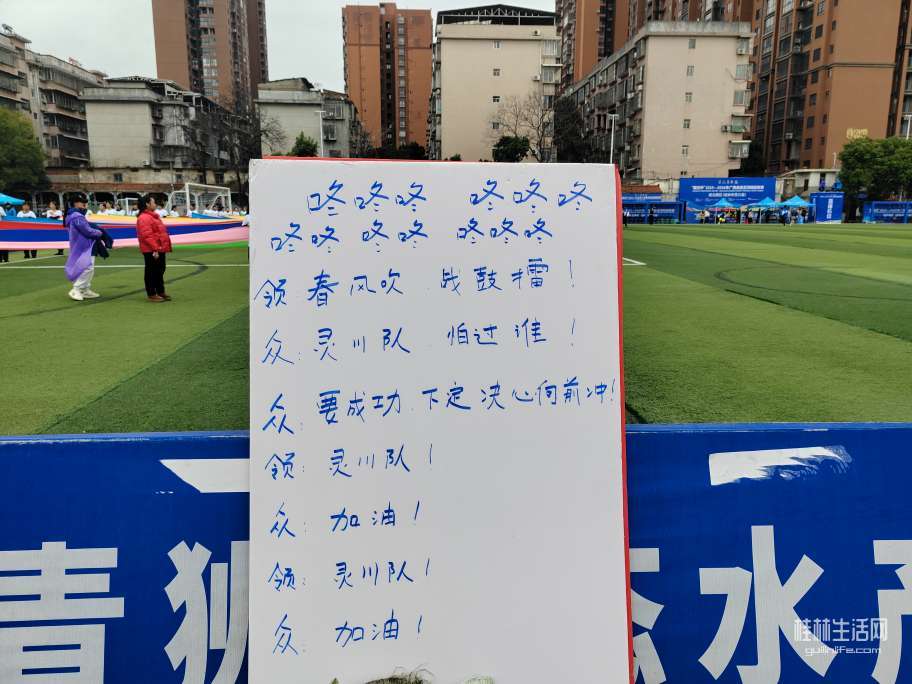 咚咚咚 咚咚咚
咚咚 咚咚 咚咚咚
领 春风吹 战鼓擂!
众: 灵川队 怕过谁!
众: 要成功 下定决心向前冲!
领: 灵川队!
众: 加油!
领: 灵川队!
众: 加油!
水产
桂林生活网
guilinlife.com